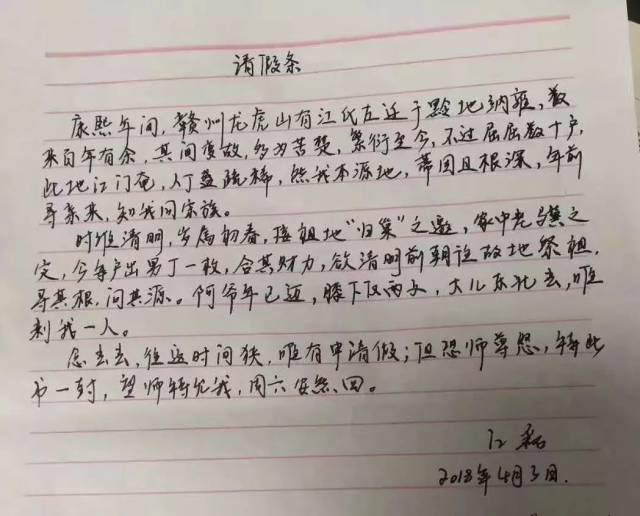 请假条
康熙年间，赣州龙虎山有江氏左迁于黔地纳雍，数
来百年有余，其间变故，多为苦楚，繁衍至今，不过屈屈数十户，
此地江门奄，人丁益疏稀，然我本源地，蒂固且根深，年前
寻亲来，知我同宗族。
时维清明，岁属初春，接祖地“归巢”之邀，家中老
定，今每户出男丁一枚，合其财力，欲清明前朝往故地祭祖，
寻其根，问其源。阿爷年已迈，膝下仅两子，大儿东北去，唯
剩我一人。
急去去，往返时间狭，唯有申请假；但恐师尊怒，特此
书一封，望师特允我，周六安然回。
江磊
2018年4月3日.